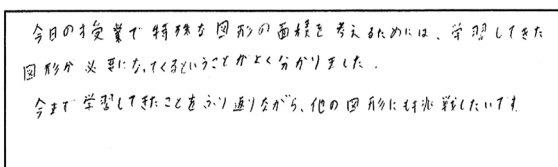 今日の授業で特殊な図形の面積を考えるためには、学習してきた
図形が必要になってくるということがよく分かりました。
今まで学習してきたことをふり返りながら、他の図形にも挑戦したいです